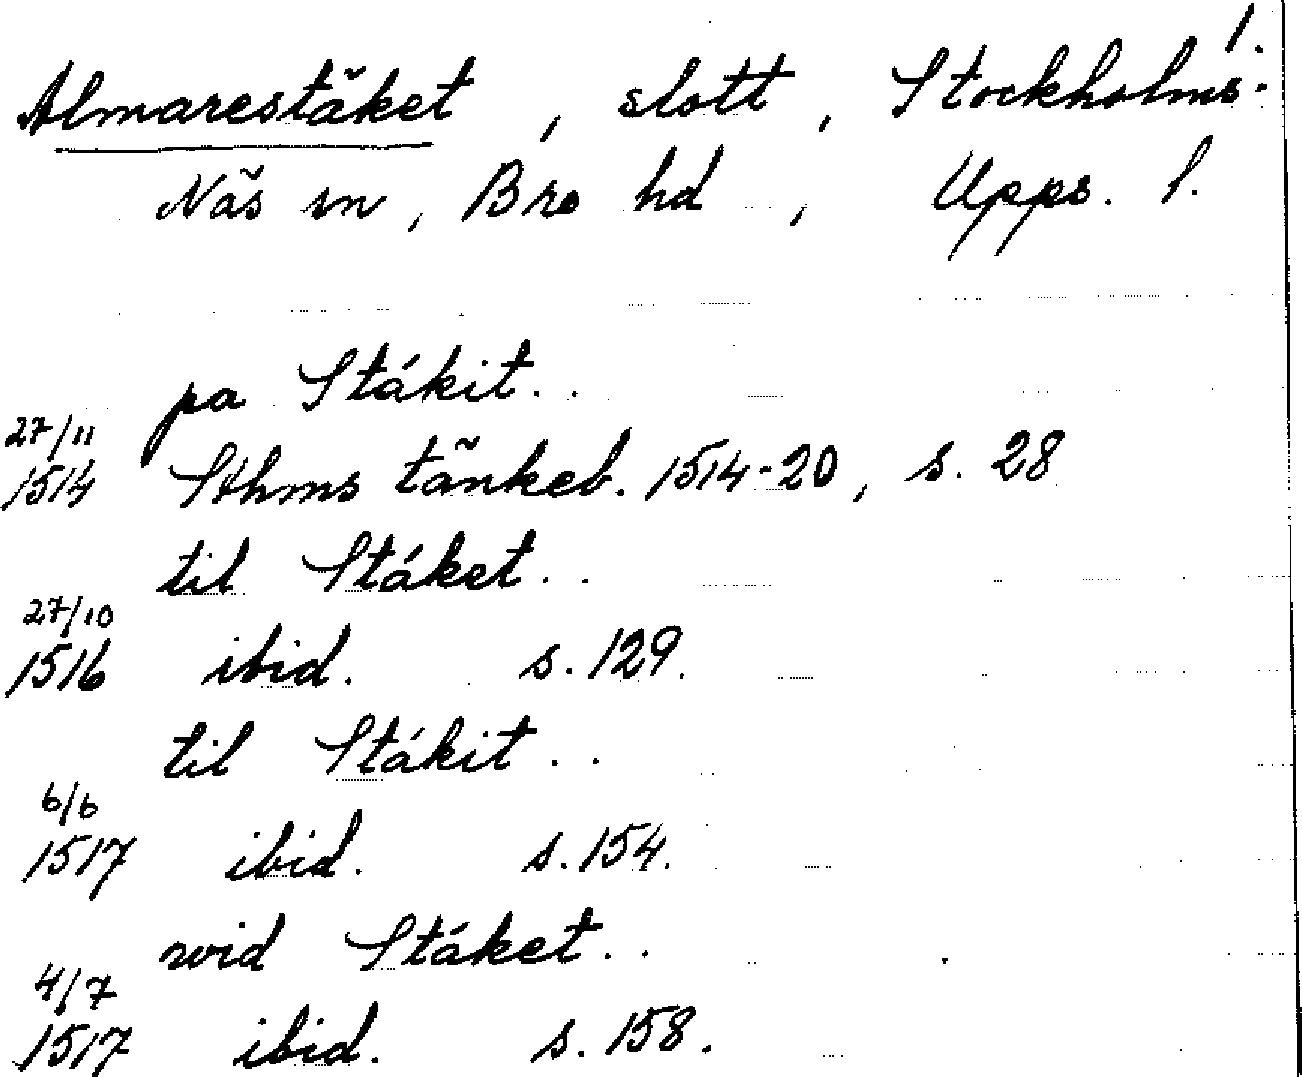 1.
Almarestäket, slott, Stockholms-
Näs sn, Bro hd, Upps. l.
pa Stákit..
27/11
1514 Sthms tänkeb. 1514-20, s. 28
til Stáket..
27/10
1516 ibid. s. 129.
til Stákit..
6/6
1517 ibid. s. 154.
wid Stáket..
4/7
1517 ibid. s. 158.